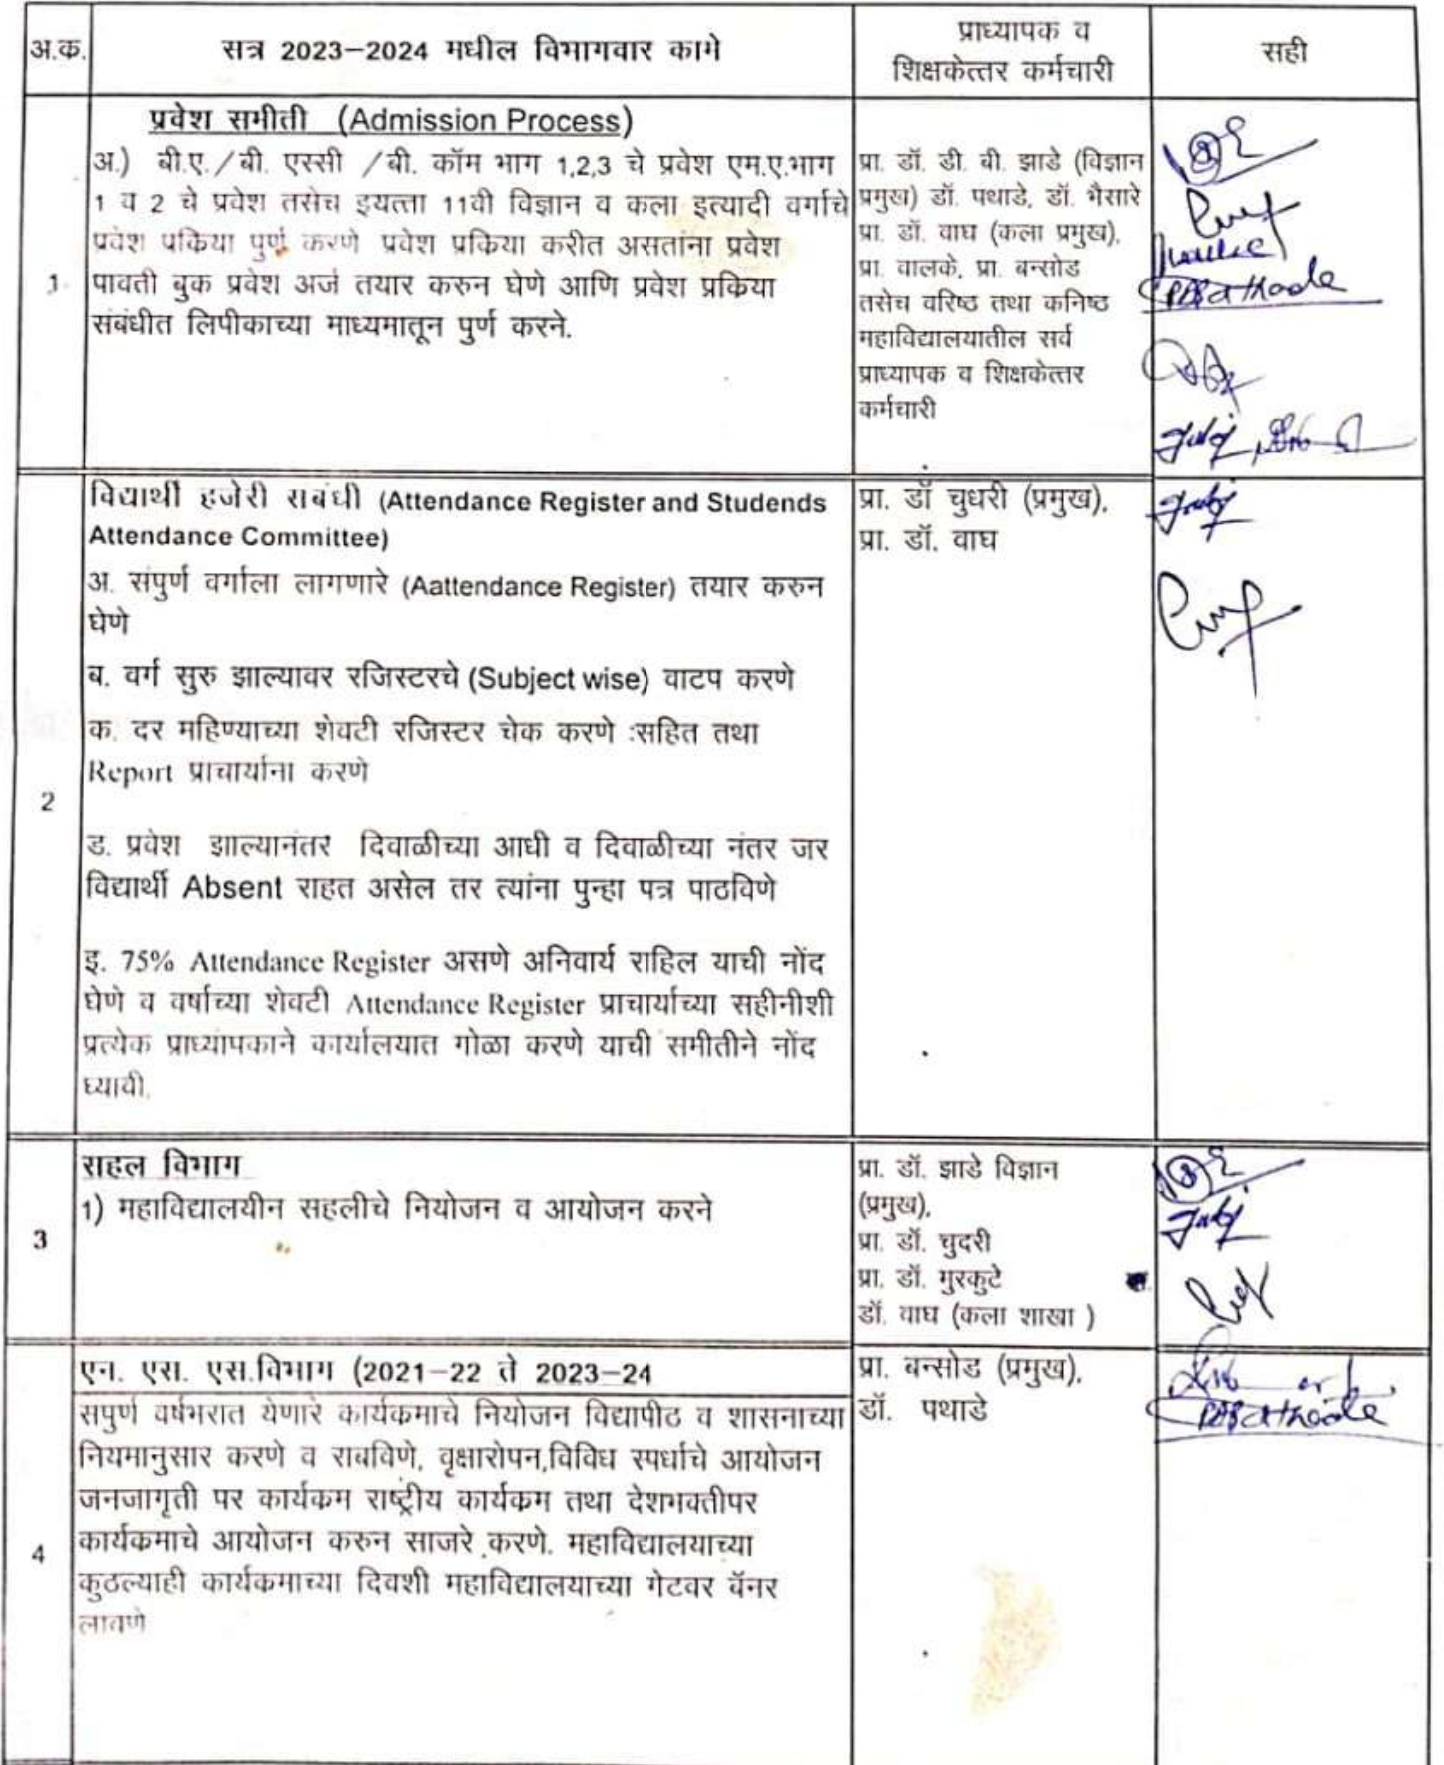 अ.क.
सत्र 2023–2024 मधील विभागवार कामे
प्राध्यापक व
शिक्षकेत्तर कर्मचारी
सही
1
प्रवेश समीती (Admission Process)
अ.) बी.ए./बी. एस्सी /बी. कॉम भाग 1,2,3 चे प्रवेश एम.ए.भाग
1 व 2 चे प्रवेश तसेच इयत्ता 11वी विज्ञान व कला इत्यादी वर्गाचे
प्रवेश प्रकिया पुर्ण करणे प्रवेश प्रकिया करीत असतांना प्रवेश
पावती बुक प्रवेश अर्ज तयार करुन घेणे आणि प्रवेश प्रकिया
संबंधीत लिपीकाच्या माध्यमातून पुर्ण करने.
प्रा. डॉ. डी. बी. झाडे (विज्ञान
प्रमुख) डॉ. पथाडे, डॉ. भैसारे
प्रा. डॉ. वाघ (कला प्रमुख),
प्रा. वालके, प्रा. बन्सोड
तसेच वरिष्ठ तथा कनिष्ठ
महाविद्यालयातील सर्व
प्राध्यापक व शिक्षकेत्तर
कर्मचारी
2
विद्यार्थी हजेरी सबंधी (Attendance Register and Studends
Attendance Committee)
अ. संपुर्ण वर्गाला लागणारे (Aattendance Register) तयार करुन
घेणे
ब. वर्ग सुरु झाल्यावर रजिस्टरचे (Subject wise) वाटप करणे
क. दर महिण्याच्या शेवटी रजिस्टर चेक करणे :सहित तथा
Report प्राचार्यांना करणे
ड. प्रवेश झाल्यानंतर दिवाळीच्या आधी व दिवाळीच्या नंतर जर
विद्यार्थी Absent राहत असेल तर त्यांना पुन्हा पत्र पाठविणे
इ. 75% Attendance Register असणे अनिवार्य राहिल याची नोंद
घेणे व वर्षाच्या शेवटी Attendance Register प्राचार्याच्या सहीनीशी
प्रत्येक प्राध्यापकाने कार्यालयात गोळा करणे याची समीतीने नोंद
घ्यावी.
प्रा. डॉ चुधरी (प्रमुख),
प्रा. डॉ. वाघ
3
सहल विभाग
1) महाविद्यालयीन सहलीचे नियोजन व आयोजन करने
प्रा. डॉ. झाडे विज्ञान
(प्रमुख),
प्रा. डॉ. चुदरी
प्रा. डॉ. गुरकुटे
डॉ. वाघ (कला शाखा )
4
एन. एस. एस.विभाग (2021–22 ते 2023–24
सपुर्ण वर्षभरात येणारे कार्यकमाचे नियोजन विद्यापीठ व शासनाच्या
नियमानुसार करणे व राबविणे, वृक्षारोपन,विविध स्पर्धाचे आयोजन
जनजागृती पर कार्यकम राष्ट्रीय कार्यकम तथा देशभक्तीपर
कार्यकमाचे आयोजन करुन साजरे करणे. महाविद्यालयाच्या
कुठल्याही कार्यकमाच्या दिवशी महाविद्यालयाच्या गेटवर बॅनर
लावणे
प्रा. बन्सोड (प्रमुख),
डॉ. पथाडे